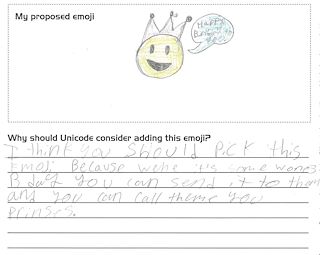 My proposed emoji
Happy
Birthday to
you!
Why should Unicode consider adding this emoji?
I think you should pick this
Emoji Because wehe it's some wones
Bday you can send it to them
and you can call theme you
prinses.